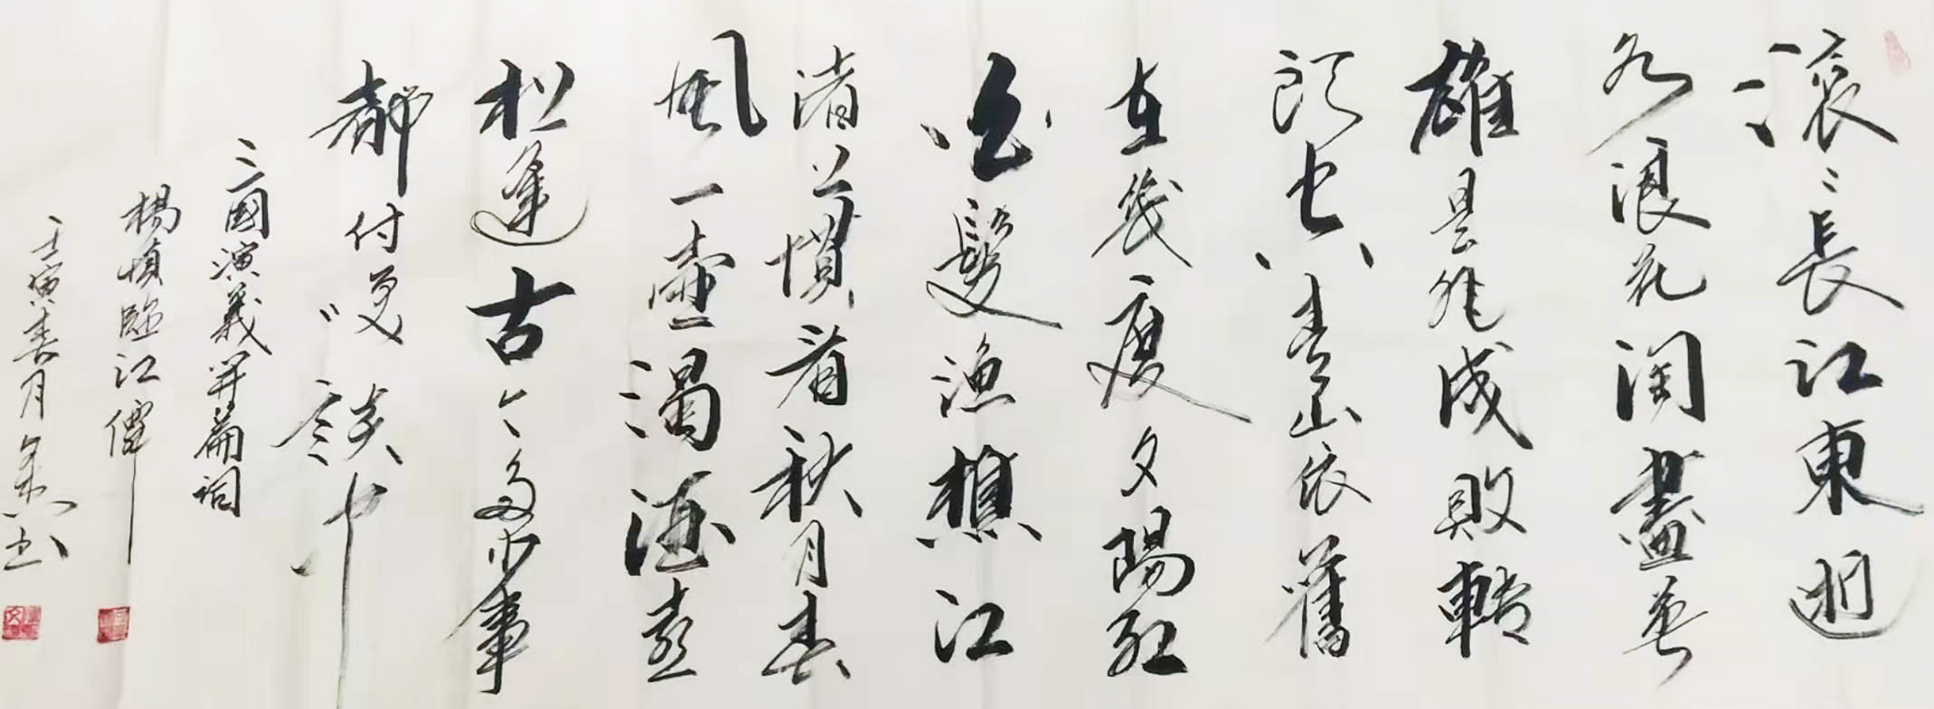 滚〻長江東逝
水浪花淘盡英
雄是非成敗轉
頭空青山依舊
在幾度夕陽紅
白髮漁樵江
渚上慣看秋月春
風一壺濁酒喜
相逢古今多少事
都付笑談中
三國演義开篇詞
楊慎臨江僊
壬寅春月书